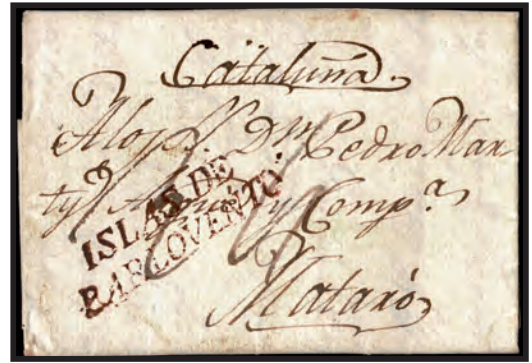 Cataluña
D.n Pedro Mar-
ty y Comp.a
ISLAS DE
BARLOVENTO
Mataró